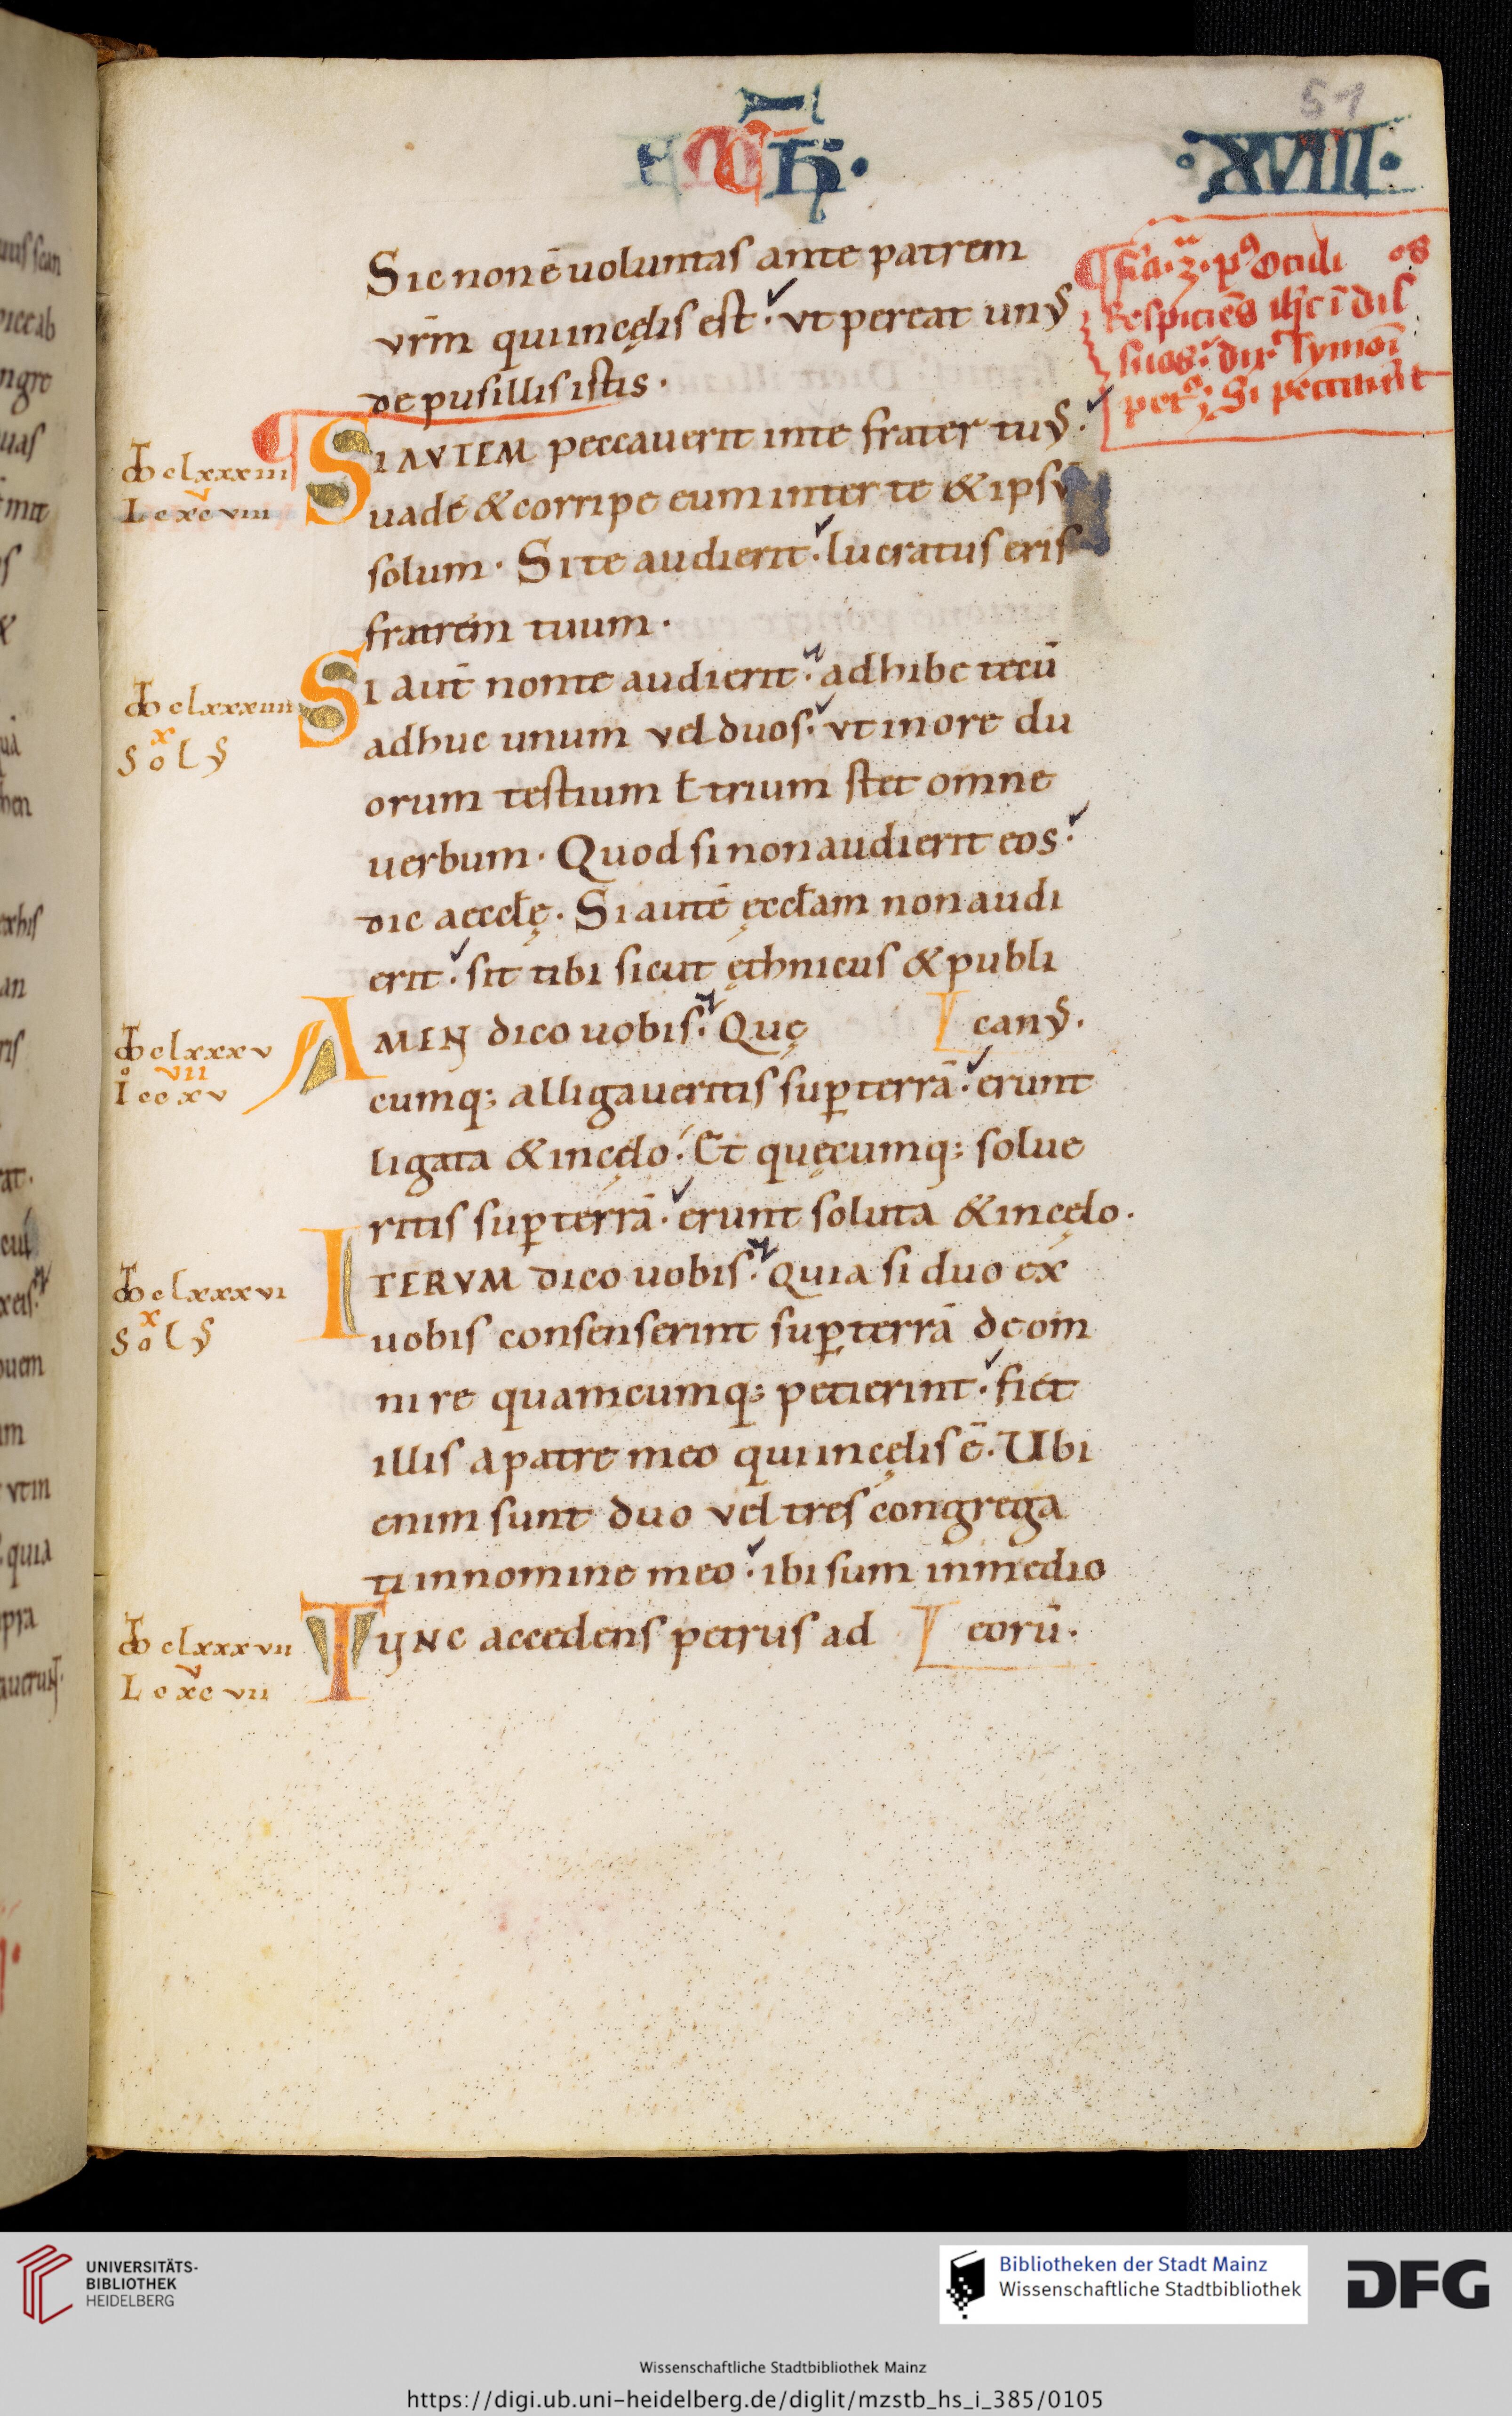 51
·XVIII·
Sic non ē uoluntas ante patrem
vr̄m qui in cęlis est. vt pereat unꝰ
de pusillis istis.
SI AVTEM peccauerit in te frater tuꝰ.
uade & corripe eum inter te & ipsū
solum. Si te audierit. lucratus eris
fratrem tuum.
SI aut̄ non te audierit. adhibe tecū
adhuc unum vel duos. vt in ore du
orum testium ł trium stet omne
uerbum. Quod si non audierit eos.
dic aecclę. Si autē ęccłam non audi
erit. sit tibi sicut ęthnicus & publi
AMEN dico uobis. Quę canꝰ.
cumq; alligaueritis suꝑ terrā. erunt
ligata & in cęlo. Et quęcumq; solue
ritis suꝑ terrā. erunt soluta & in cęlo.
ITERVM dico uobis. Quia si duo ex
uobis consenserint suꝑ terrā de om
ni re quamcumq; petierint. fiet
illis a patre meo qui in cęlis ē. Ubi
enim sunt duo vel tres congrega
ti in nomine meo. ibi sum in medio
TUNC accedens petrus ad eorū.
clxxxiii
L cxcviii
v
clxxxiiii
x
Solꝰ
clxxxv
vii
Io ccxv
clxxxvi
x
Solꝰ
clxxxvii
v
L cxcvii
UNIVERSITÄTS-
BIBLIOTHEK
HEIDELBERG
Bibliotheken der Stadt Mainz
Wissenschaftliche Stadtbibliothek
DFG
Wissenschaftliche Stadtbibliothek Mainz
https://digi.ub.uni-heidelberg.de/diglit/mzstb_hs_i_385/0105